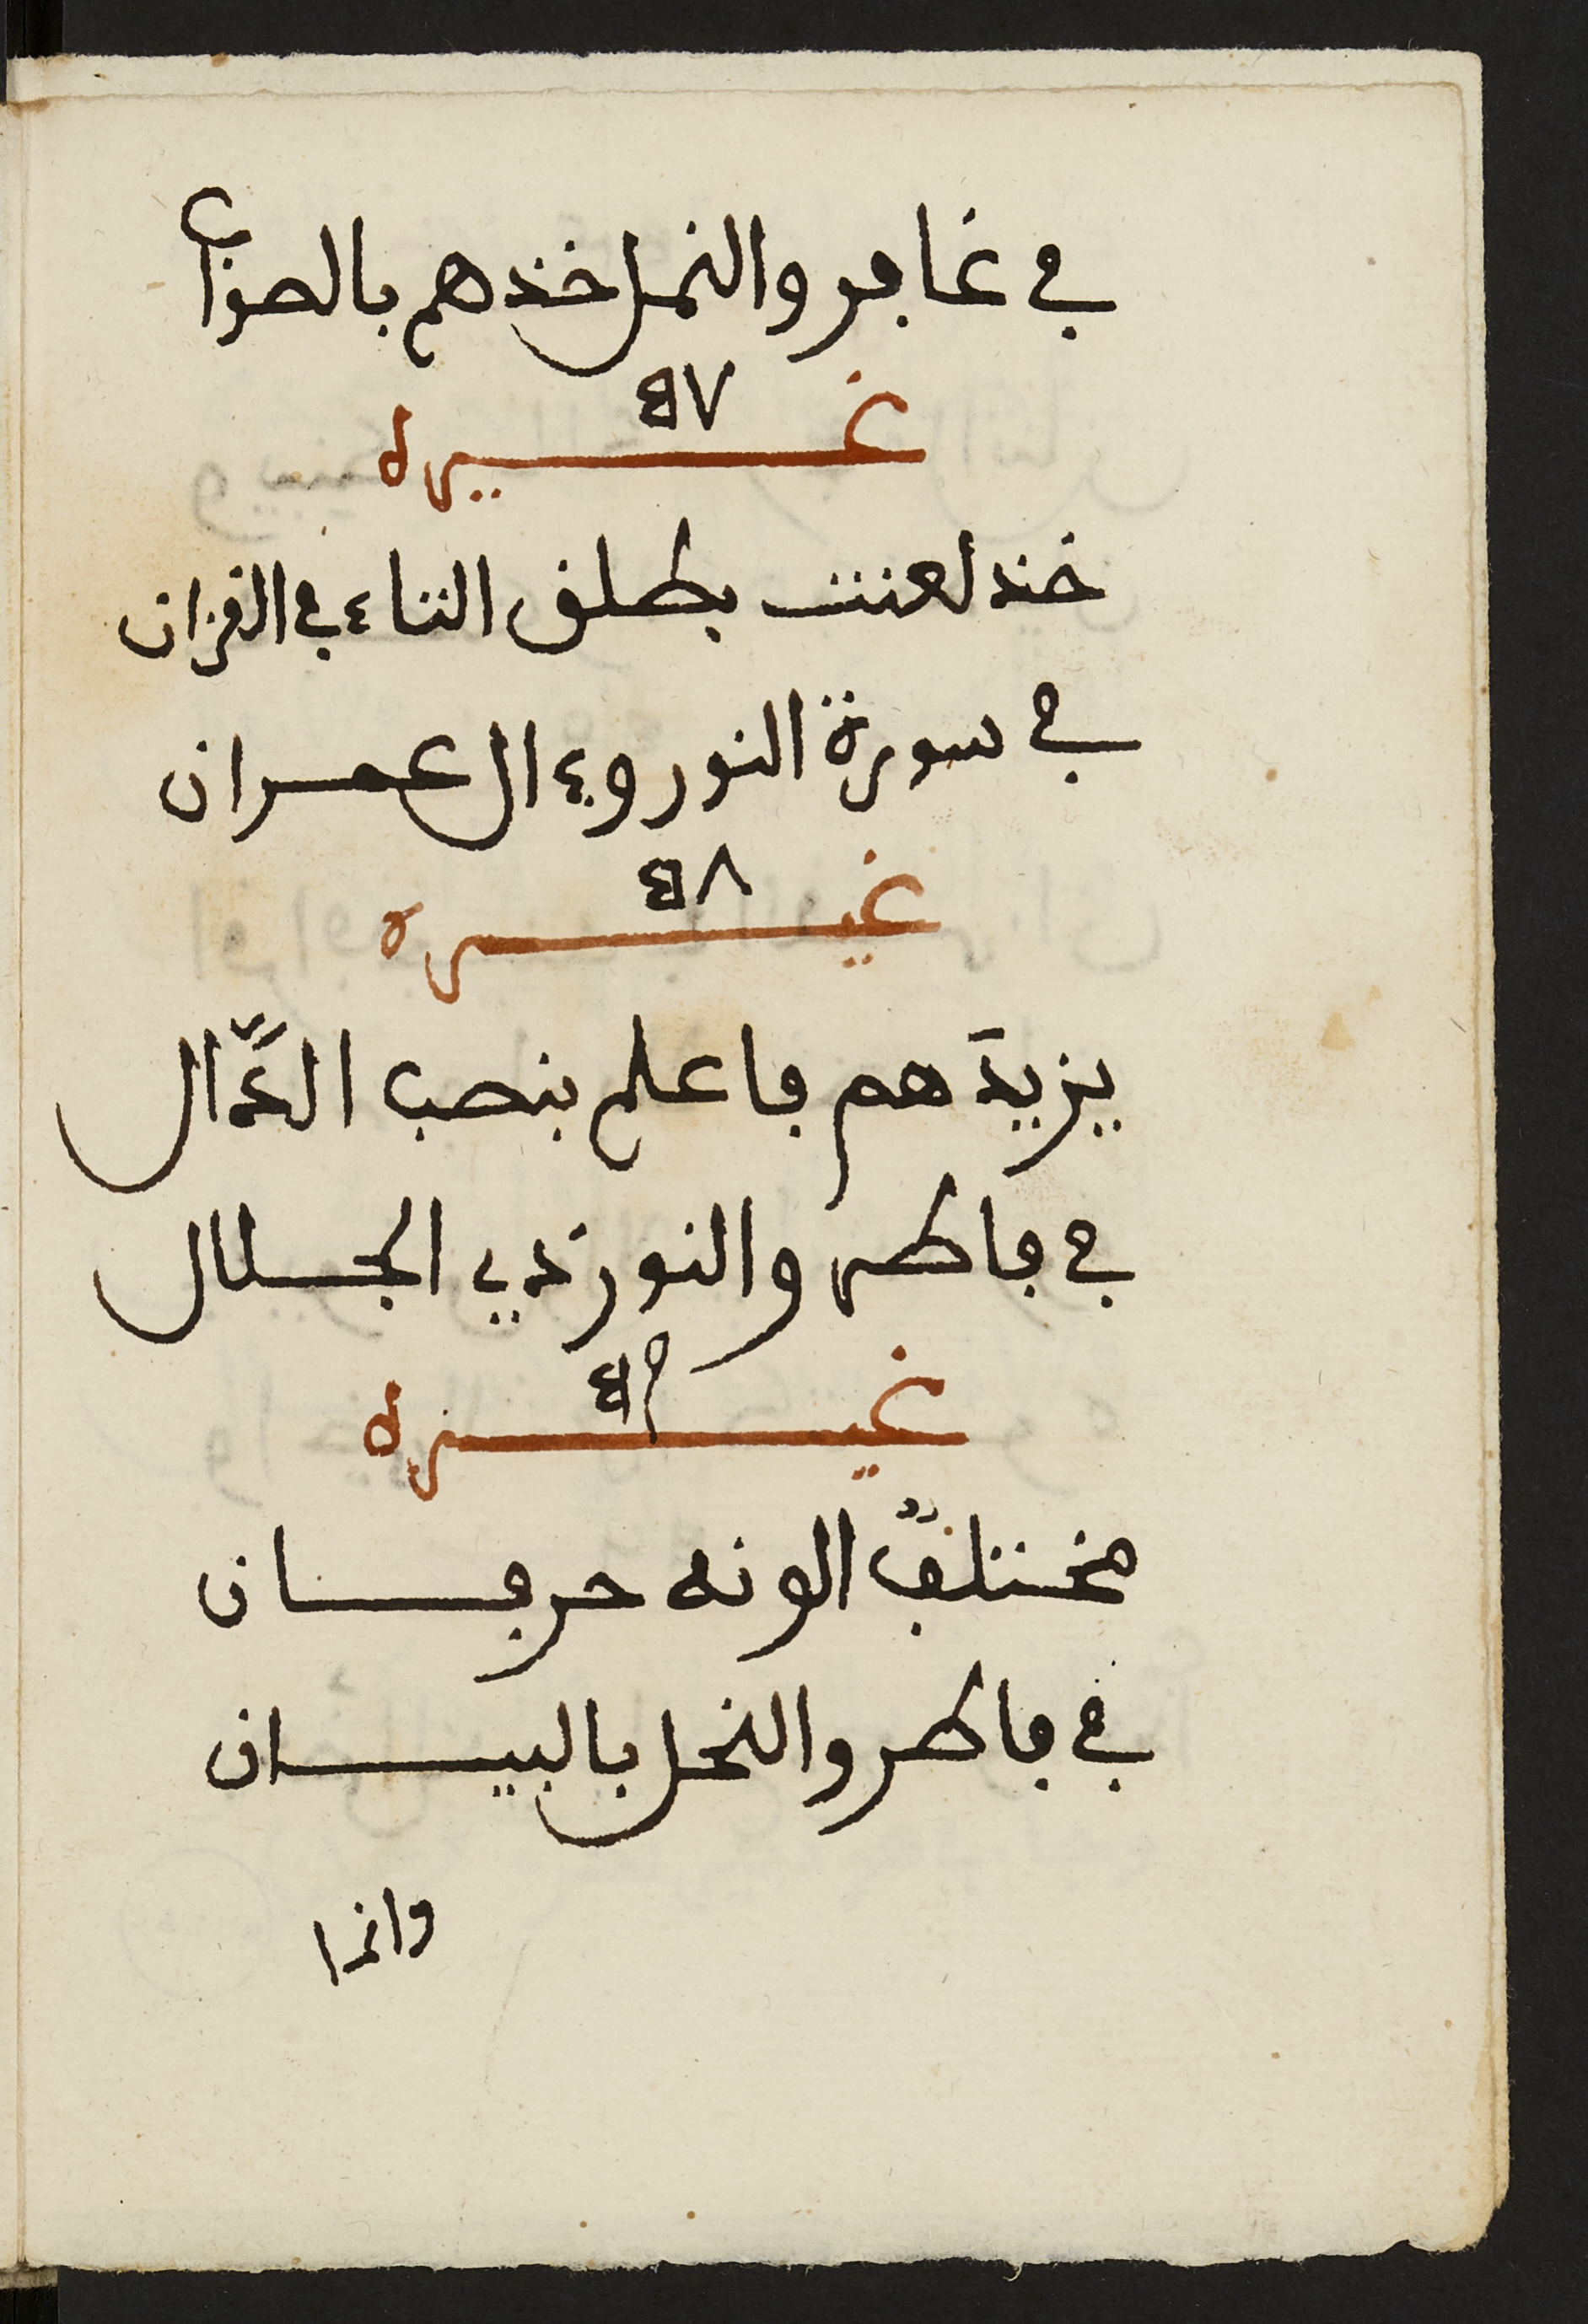 في غافر والنمل خذهم بالصواب
٤٧
غيره
خذ لعنت بطلق التاء في القران
في سورة النور وفي ال عمران
٤٨
غيره
يزيدَهم فاعلم بنصب الدَّال
في فاطر والنور ذي الجلال
٤٩
غيره
مختلفٌ الونه حرفان
في فاطر والنحل بالبيان
وانما